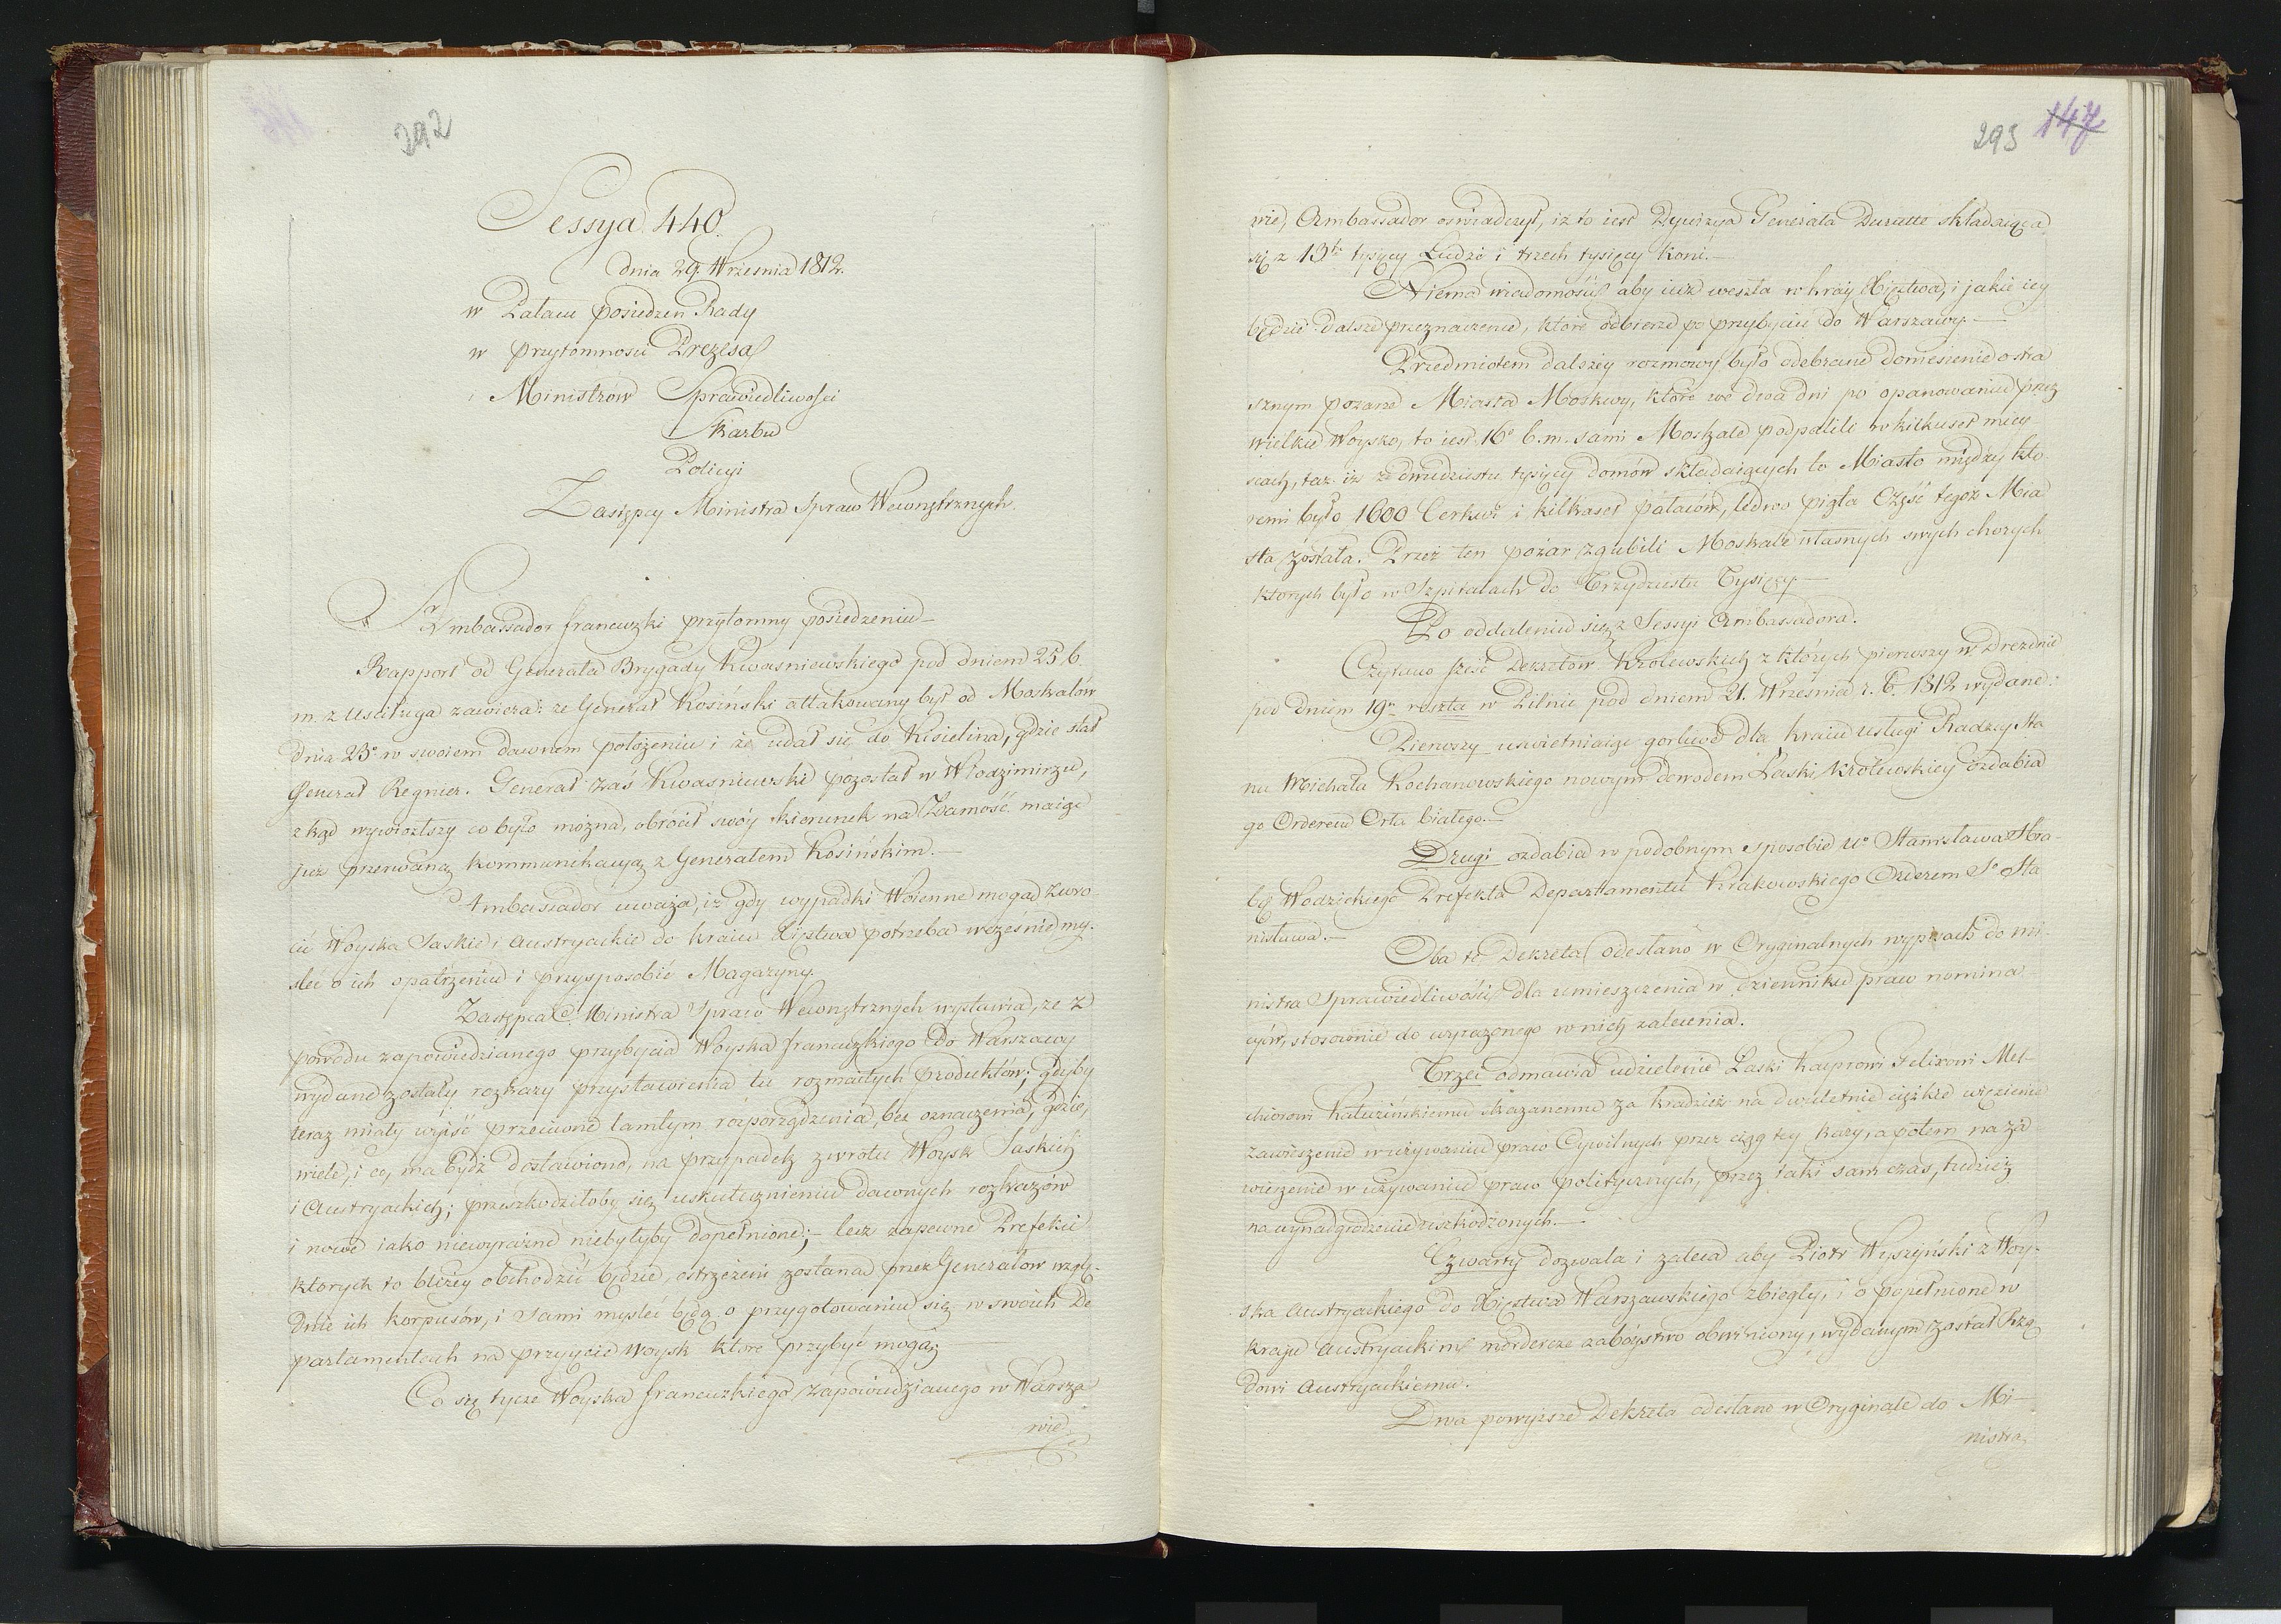 292
Sessya 440.
dnia 29 Września 1812.
w Pałacu posiedzeń Rady
w przytomności Prezesa
Ministrów Sprawiedliwości
Skarbu
Policyi
Zastępcy Ministra Spraw Wewnętrznych.
Ambassador francuzki przytomny posiedzeniu –
Rapport od Generała Brygady Kwasniewskiego pod dniem 25 b.
m. z Uściługa zawiera: że Generał Kosiński attakowany był od Moskalów
dnia 23o w swoiem dawnem położeniu i że udał się do Kisielina, gdzie stał
Generał Regnier. Generał zaś Kwasniewski pozostał w Włodzimirzu,
zkąd wywiozłszy co było można, obrócił swóy kierunek na Zamość maiąc
już przerwaną kommunikacyą z Generałem Kosińskim. –
Ambassador uważa, iż gdy wypadki Woienne mogą zwró-
cić Woyska Saskie i Austryackie do kraiu Xięstwa potrzeba wcześnie my-
śleć o ich opatrzeniu i przysposobić Magazyny.
Zastępca Ministra Spraw Wewnętrznych wystawia, że z
powodu zapowiedzianego przybycia Woyska francuzkiego do Warszawy
wydane zostały rozkazy przystawienia tu rozmaitych produktów; gdyby
teraz miały wyiść przeciwne tamtym rozporządzenia, bez oznaczenia, gdzie,
wiele, i co, ma bydź dostawiono, na przypadek zwrotu Woysk Saskich
i Austryackich; przeszkodziłoby się uskutecznieniu dawnych rozkazów
i nowe iako niewyraźne niebyłyby dopełnione; – lecz zapewne Prefekci
których to bliżey obchodzić będzie, ostrzeżeni zostaną przez Generałów wzglę-
dnie ich korpusów, i sami myśleć będą o przygotowaniu się w swoich De
partamentach na przyięcie Woysk które przybyć mogą;
Co się tycze Woyska francuzkiego, zapowiedzianego w Warsza
wie,
293 147
wie, Ambassador oświadczył, iż to iest Dywizya Generała Durutte składaiąca
się z 13tu tysięcy Ludzi i trzech tysięcy Koni. –
Niema wiadomości aby iuż weszła w kray Xięstwa, i jakie iey
będzie dalsze przeznaczenie, które odbierze po przybyciu do Warszawy. –
Przedmiotem dalszey rozmowy było odebrane doniesienie o stra
sznym pożarze Miasta Moskwy, które we dwa dni po opanowaniu przez
wielkie Woysko, to iest 16o b. m. sami Moskale podpalili w kilkuset miey-
scach, tak iż ze dwudziestu tysięcy domów składaiących to Miasto między któ
remi było 1600 Cerkwi i kilkaset pałaców, ledwo piąta Część tegoż Mia
sta została. Przez ten pożar zgubili Moskale własnych swych chorych
których było w Szpitalach do Trzydziestu Tysięcy. –
Po oddaleniu się z Sessyi Ambassadora.
Czytano sześć Dekretów Królewskich z których pierwszy w Dreznie
pod dniem 19m reszta w Pilnic pod dniem 21. Września r. b. 1812 wydane:
Pierwszy uświetniaiąc gorliwe dla kraiu usługi Radzcy Sta
nu Michała Kochanowskiego nowym dowodem Łaski Królewskiey ozdabia
go Orderem Orła białego. –
Drugi ozdabia w podobnym sposobie Wo Stanisława Hra-
bę Wodzickiego Prefekta Departamentu Krakowskiego Orderem So Sta
nisława. –
Oba te Dekreta odesłano w Oryginalnych wypisach do Mi-
nistra Sprawiedliwości dla umieszczenia w dzienniku praw nomina-
cyów, stosownie do wyrażonego w nich zalecenia.
Trzeci odmawia udzielenie Łaski Kacprowi Felixowi Mel-
chiorowi Kaluzińskiemu skazanemu za kradzież na dwuletnie ciężkie więzienie
zawieszenie w używaniu praw Cywilnych przez ciąg tey kary, a potem na za
wieszenie w używaniu praw politycznych, przez taki sam czas, tudzież
na wynadgrodzenie uszkodzonych. –
Czwarty dozwala i zaleca aby Piotr Wyszyński z Woy-
ska Austryackiego do Xięstwa Warszawskiego zbiegły, i o popełnione w
kraju Austryackim mordercze zabóystwo obwiniony, wydanym został Rzą
dowi Austryackiemu.
Dwa powyższe Dekreta odesłano w Oryginale do Mi-
nistra